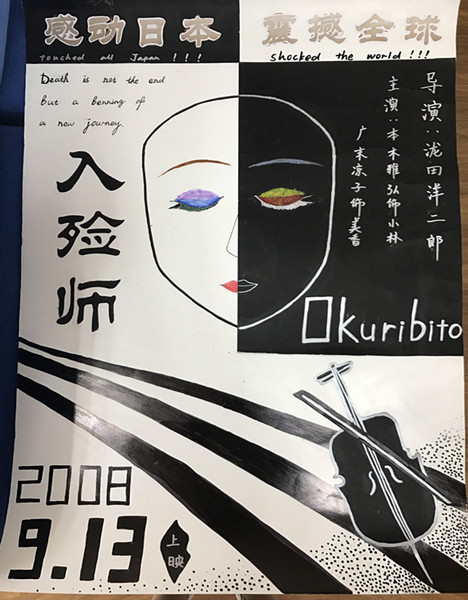 感动日本
震撼全球
touched all Japan !!!
shocked the world !!!
Death is not the end
But a benning of
a new journey.
入殓师
导演：泷田洋二郎
主演：本木雅弘饰小林
广末凉子饰美香
Okuribito
2008
9.13
上映